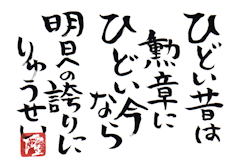 ひどい昔は
勲章に
ひどい今なら
明日への誇りに
りゅうせい